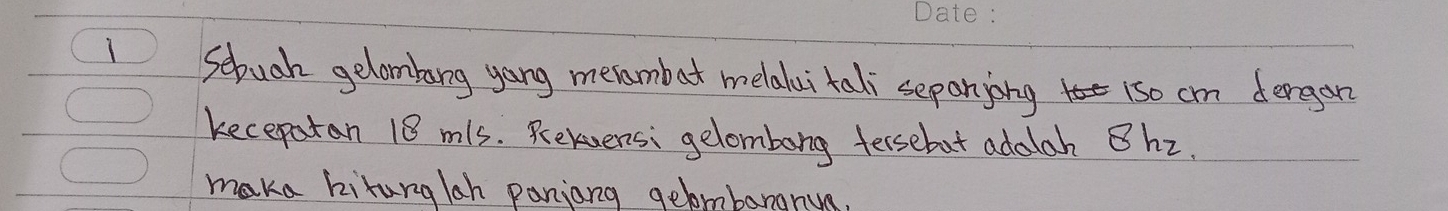 Date :
1 Sebuah gelombang yang merambat melalui tali sepanjang 150 cm dengan
kecepatan 18 m/s. Frekuensi gelombang tersebut adalah 8 hz.
maka hitunglah panjang gelombangnya.